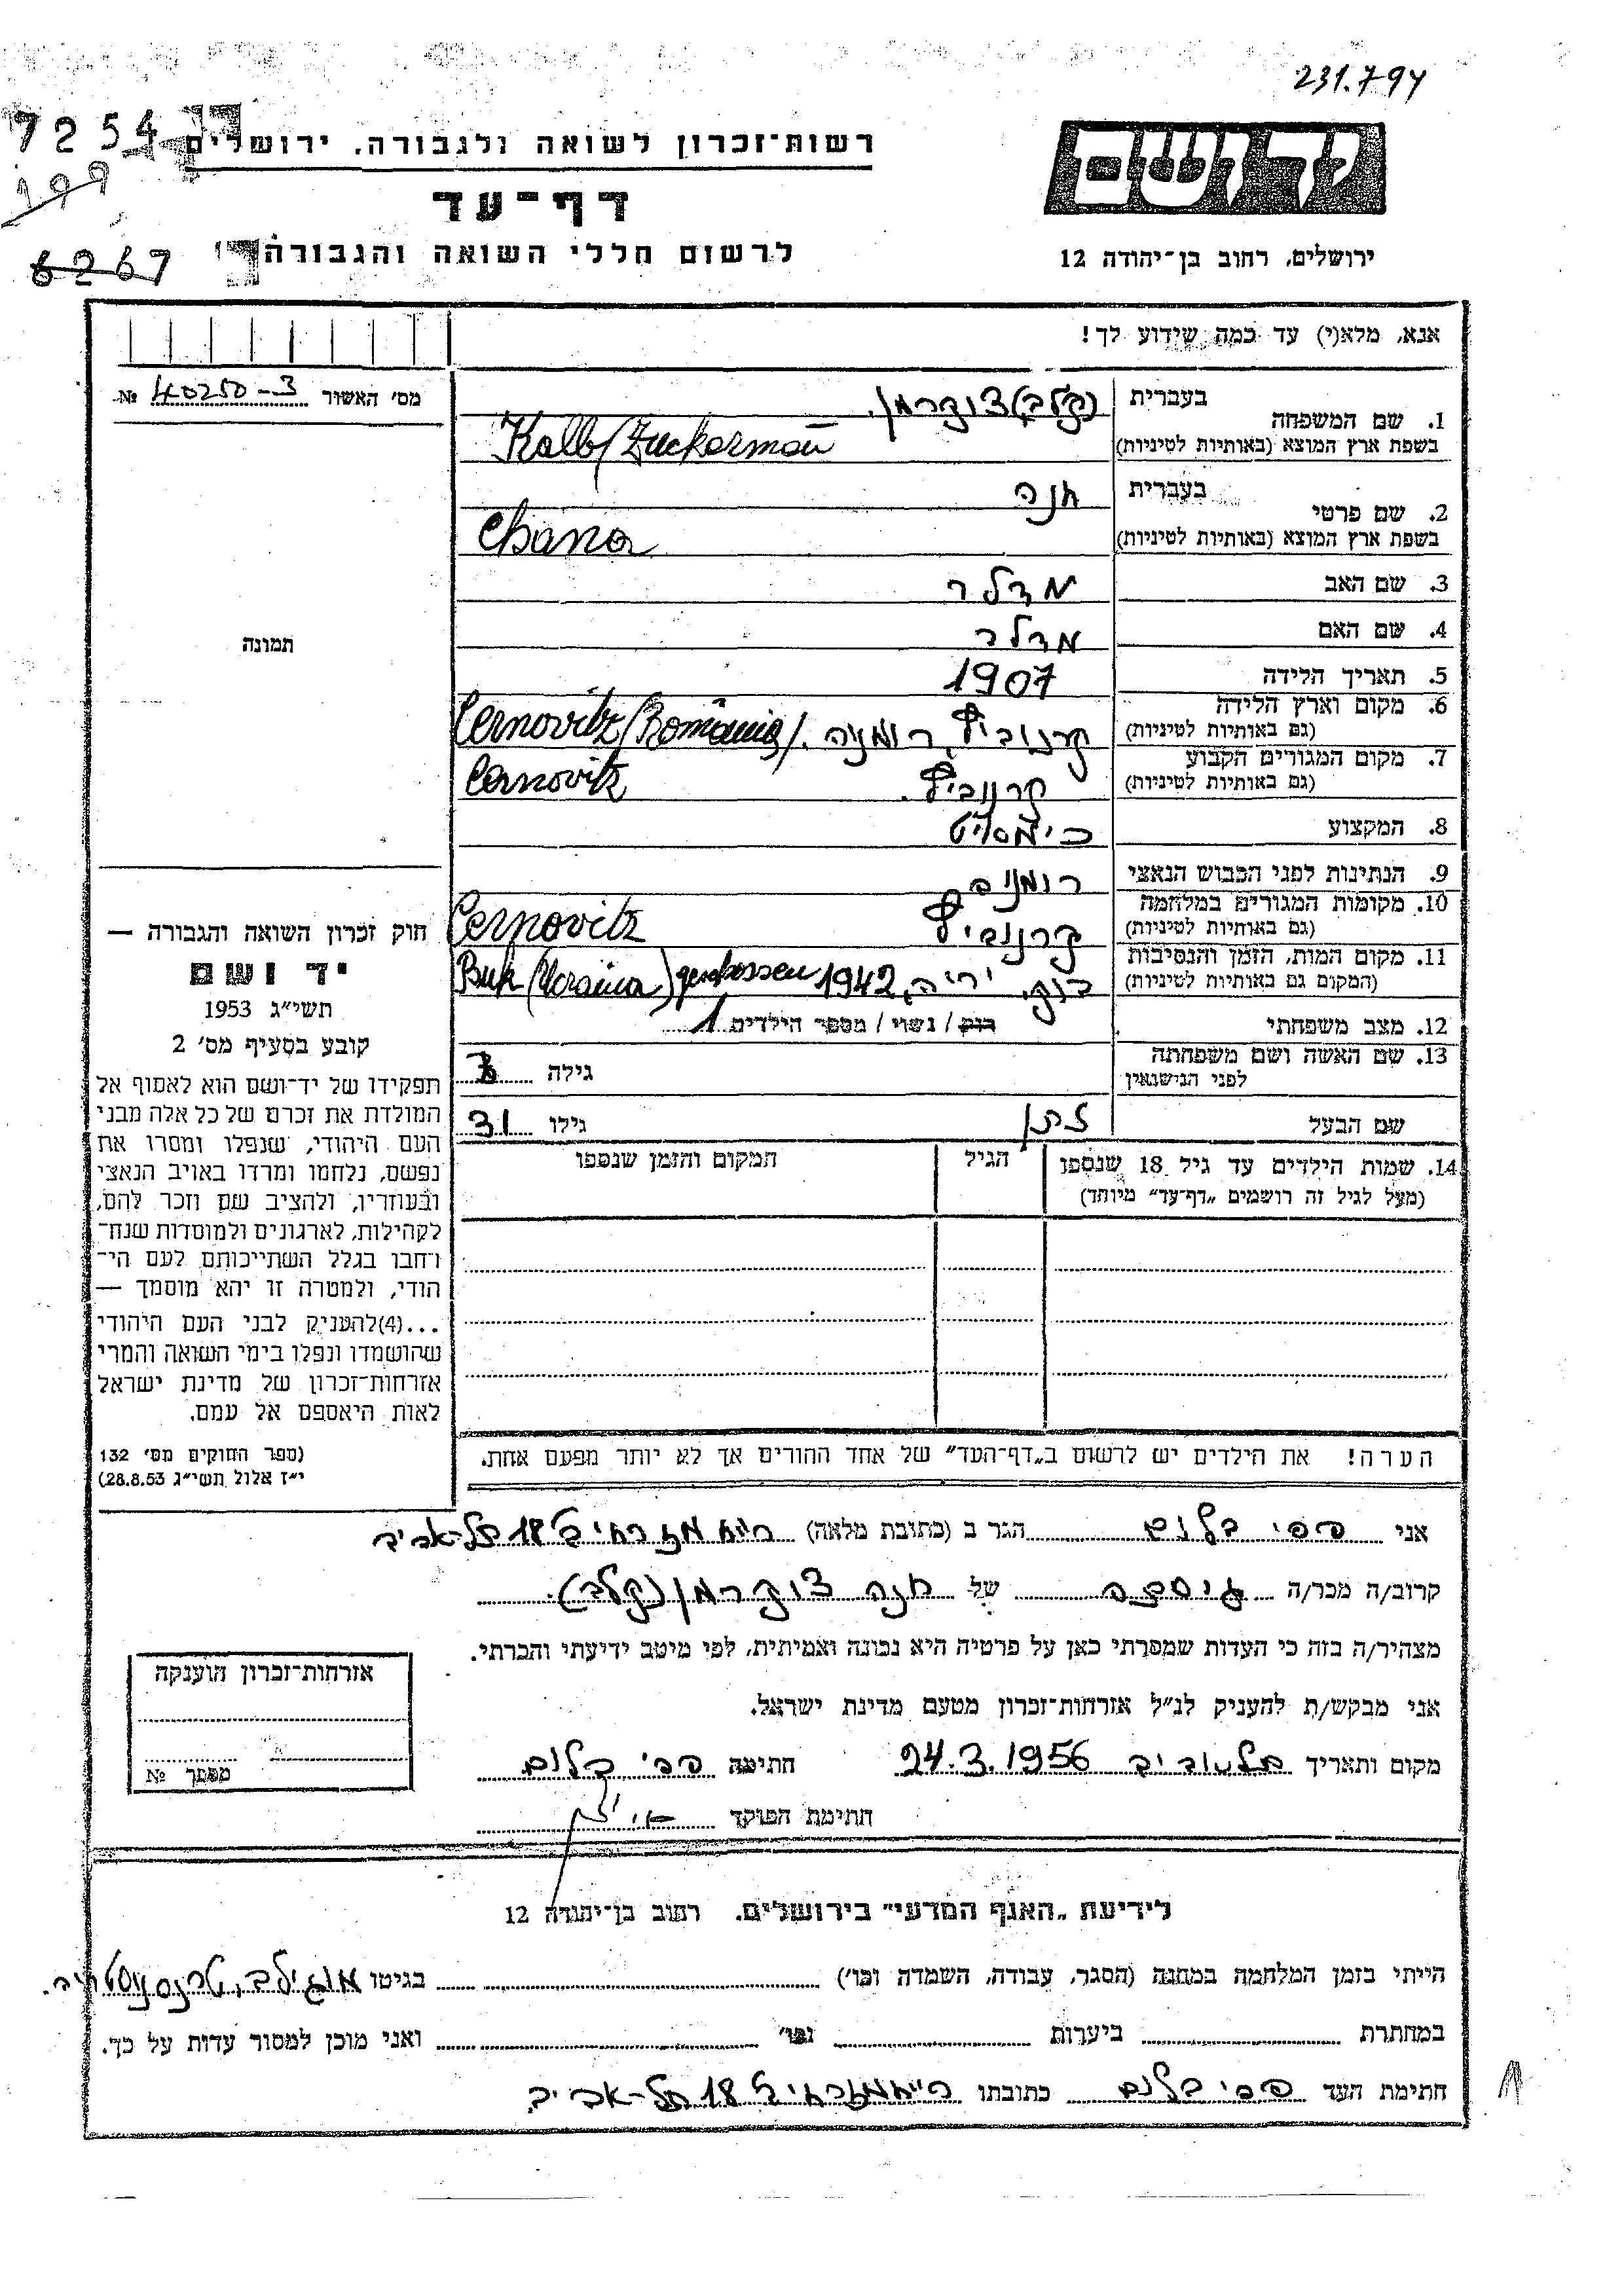 231.794
7254
199
6267
רשות-זכרון לשואה ולגבורה, ירושלים
דף-עד
לרשום חללי השואה והגבורה
יד ושם
ירושלים, רחוב בן-יהודה 12
אנא, מלא(י) עד כמה שידוע לך!
מס' האשור 40250-3 №
1. שם המשפחה בעברית (קלב) צוקרמן
בשפת ארץ המוצא (באותיות לטיניות) Kalb/Zuckerman
2. שם פרטי בעברית חנה
בשפת ארץ המוצא (באותיות לטיניות) Chana
3. שם האב
4. שם האם
5. תאריך הלידה 1907
6. מקום וארץ הלידה (גם באותיות לטיניות) קרנוביץ, רומניה / Cernovitz/România/
7. מקום המגורים הקבוע (גם באותיות לטיניות) קרנוביץ. Cernovitz
8. המקצוע
9. הנתינות לפני הכבוש הנאצי רומנית
10. מקומות המגורים במלחמה (גם באותיות לטיניות) קרנוביץ Cernovitz
11. מקום המות, הזמן והנסיבות (המקום גם באותיות לטיניות) בוק, יריה, 1942 Buk (Ucraina) geschossen
12. מצב משפחתי רוק / נשוי / מספר הילדים 1
13. שם האשה ושם משפחתה לפני הנישואין גילה
שם הבעל גילו 31
14. שמות הילדים עד גיל 18 שנספו הגיל המקום והזמן שנספו
(מעל לגיל זה רושמים „דף-עד" מיוחד)
הערה! את הילדים יש לרשום ב„דף-העד" של אחד ההורים אך לא יותר מפעם אחת.
תמונה
חוק זכרון השואה והגבורה —
יד ושם
תשי"ג 1953
קובע בסעיף מס' 2
תפקידו של יד-ושם הוא לאסוף אל
המולדת את זכרם של כל אלה מבני
העם היהודי, שנפלו ומסרו את
נפשם, נלחמו ומרדו באויב הנאצי
ובעוזריו, ולהציב שם וזכר להם,
לקהילות, לארגונים ולמוסדות שנח-
רבו בגלל השתייכותם לעם הי-
הודי, ולמטרה זו יהא מוסמך —
...(4)להעניק לבני העם היהודי
שהושמדו ונפלו בימי השואה והמרי
אזרחות-זכרון של מדינת ישראל
לאות היאספם אל עמם.
(ספר החוקים מס' 132
י"ז אלול תשי"ג 28.8.53)
אני פפי בלום הגר ב (כתובת מלאה) רייח מזרחי ב 18 תל-אביב
קרוב/ה מכר/ה גיסתה של חנה צוקרמן (קלב).
מצהיר/ה בזה כי העדות שמסרתי כאן על פרטיה היא נכונה ואמיתית, לפי מיטב ידיעתי והכרתי.
אני מבקש/ת להעניק לנ"ל אזרחות-זכרון מטעם מדינת ישראל.
מקום ותאריך תל אביב 24.3.1956 חתימה פפי בלום
חתימת הפוקד
אזרחות-זכרון הוענקה
מספר №
לידיעת „האגף המדעי" בירושלים. רחוב בן-יהודה 12
הייתי בזמן המלחמה במחנה (הסגר, עבודה, השמדה וכו') בגיטו מוגילב, טרנסניסטריה.
במחתרת ביערות וכו' ואני מוכן למסור עדות על כך.
חתימת העד פפי בלום כתובתו רייח מזרחי ב 18 תל-אביב